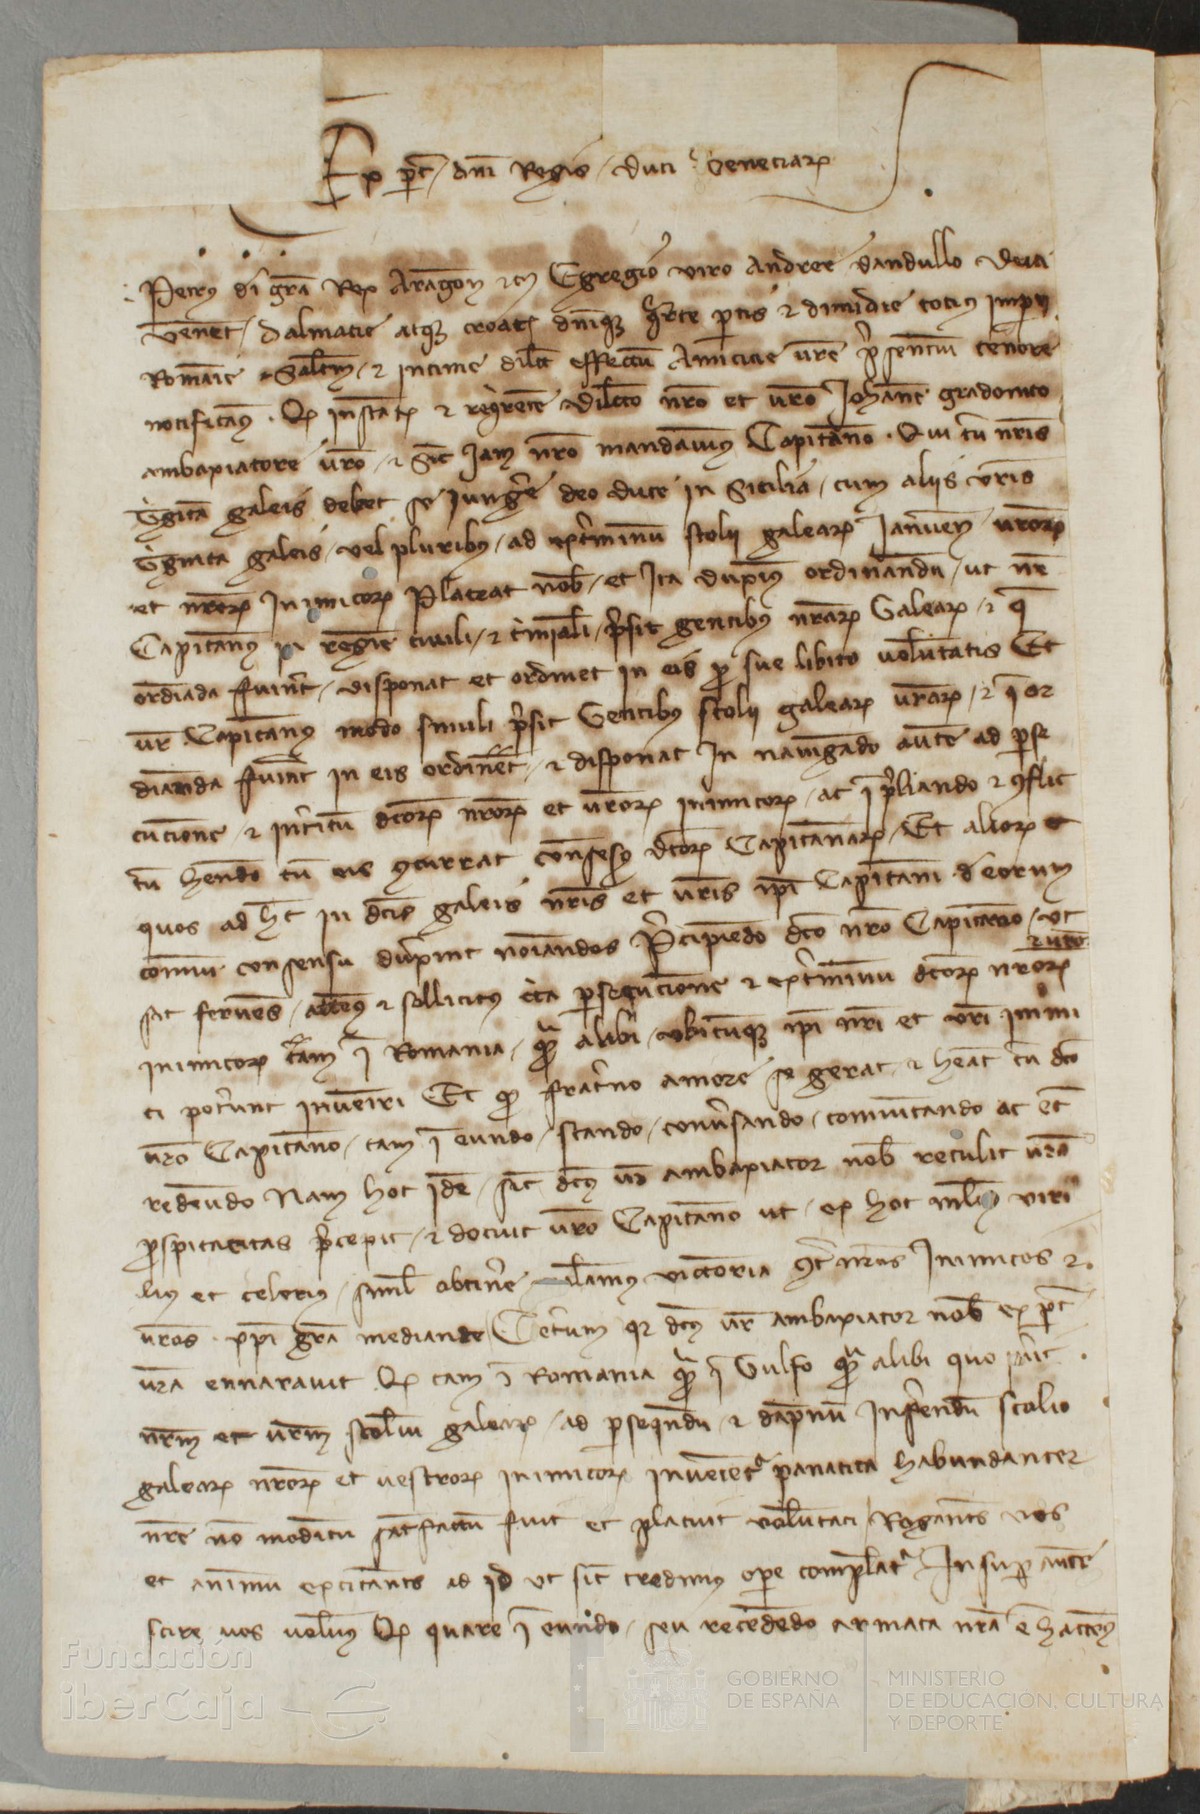 Ex pte dni Regis duci Veneciarum
Petrus di gra Rex Aragon etc Egregio viro Andree dandullo Duci
Venet dalmatie atque croat dnique qrte ptis et dimidie totius Imperii
Romanie Saltm et intime dilct effectum Amicicie vre presentium tenore
notificamus. Q instant et reqrente dilecto nro et vro Johane gradonico
ambaxiatore vro et sic jam nro mandavimus Capitaneo. Qui cum nris
galeis debet se jungere deo duce in Sicilia cum aliis vris
galeis vel pluribus ad extminium stolii galearum Januen vrorum
et nrorum Inimicorum Placeat nob et Ita duximus ordinandum ut nr
Capitaneus in regimine civili et criminali presit gentibus nrarum Galearum et que
ordinanda fuerint disponat et ordinet in eis pro sue libito voluntatis Et
vr Capitaneus modo simili presit Gentibus stolii galearum vrarum et que or
dinanda fuerint in eis ordinet et disponat In navigando autem ad perse
cucionem et interitum dictorum nrorum et vrorum inimicorum ac in preliando et conflic
tum hendo cum eis concurrat consensus dictorum Capitaneorum Et aliorum
quos ad hec in dictis galeis nris et vris ipi Capitanei de eorum
comuni consensu duxerint noiandos Precipiendo dco nro Capitaneo ut
et vro
sit fervens attentus et sollicitus circa persecucionem et exterminium dictorum nrorum
inimicorum tam in Romania quam alibi ubicunque ipi nri et vri inimi
ci poterunt inveniri Et quod fraterno amore se gerat et heat cum dco
vro Capitaneo tam in eundo stando conversando comunicando ac et
redeundo Nam hoc idem sicut dcus vr ambaxiator nob retulit vra
prospicacitas precepit et docuit vro Capitaneo ut ex hoc melius viri
lius et celerius simul obtinere valeamus victoriam contra nros Inimicos et
vros xpi gra mediante Ceterum qr dcus vr ambaxiator nob ex pte
vra ennaravit Q tam in Romania quam in Gulfo quam alibi quo
nrum et vrum stolium galearum ad persequendum et dapnum Inferendum stolio
galearum nrorum et vestrorum inimicorum invenietur panatica habundanter
nre no modicum satisfactum fuit et placuit voluntati Rogantes vos
et animum excitantes ad id ut sicut credimus opere compleatur Insuper autem
scire vos volumus Q quare in eundo seu recedendo armata nra hactenus
Fundación
iberCaja
GOBIERNO
DE ESPAÑA
MINISTERIO
DE EDUCACIÓN, CULTURA
Y DEPORTE